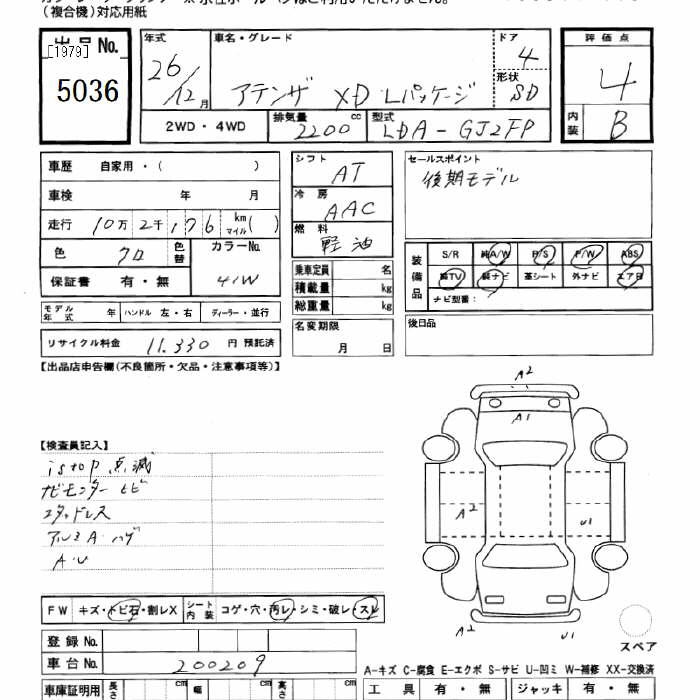 (複合機)対応用紙
出品No.
[1979]
5036
年式
26/12月
車名・グレード
アテンザ XD Lパッケージ
ドア
4
形状
SD
2WD・4WD
排気量 2200 cc
型式 LDA-GJ2FP
評価点
4
内装 B
車歴 自家用・( )
車検 年 月
走行 10万2千176 km マイル( )
色 クロ 色替
カラーNo. 41W
保証書 有・無
モデル年式 年 ハンドル 左・右 ディーラー・並行
リサイクル料金 11.330 円 預託済
シフト AT
冷房 AAC
燃料 軽油
乗車定員 名
積載量 kg
総重量 kg
名変期限
月 日
セールスポイント
後期モデル
装備品
S/R 純A/W P/S P/W ABS
純TV 純ナビ 革シート 外ナビ エアB
ナビ型番:
後日品
【出品店申告欄(不良箇所・欠品・注意事項等)】
【検査員記入】
istop 点滅
ナビモニター ヒビ
スタッドレス
アルミA・ハゲ
A・U
A2
A1
A2
U1
A2
スペア
FW キズ・トビ石・割レX シート内装 コゲ・穴・汚レ・シミ・破レ・スレ
登録No.
車台No. 200209
A-キズ C-腐食 E-エクボ S-サビ U-凹ミ W-補修 XX-交換済
車庫証明用 長さ cm 幅 cm 高さ cm
工具 有・無 ジャッキ 有・無